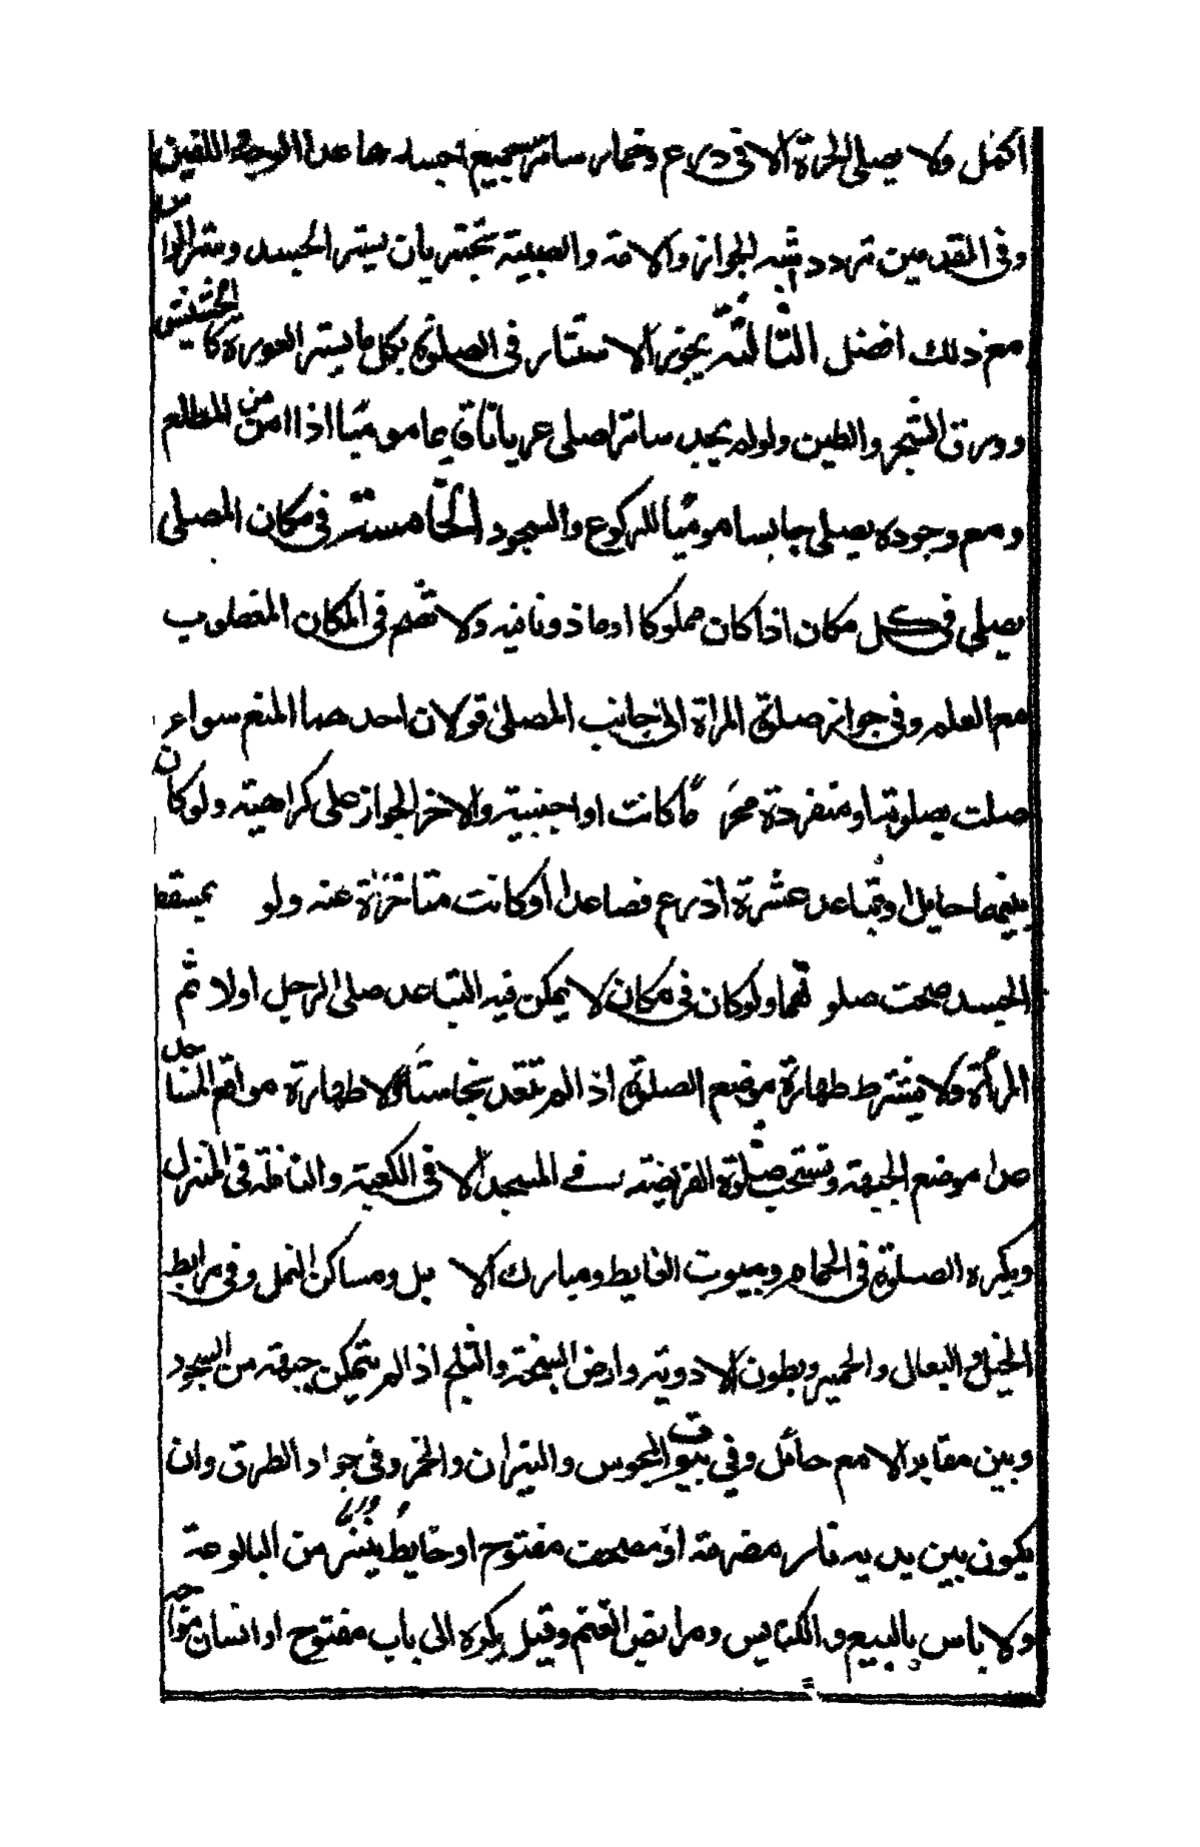 اكمل ولا يصلى الحرة الا فى درع وخمار ساتر لجميع جسدها عدا الوجه والكفين
وفى القدمين تردد اشبه الجواز والامة والصبية تجتزيان بستر الجسد وستر الراس
مع ذلك افضل الثالثة يجوز الاستتار فى الصلوة بكل ما يستر العورة كالحشيش
وورق الشجر والطين ولو لم يجد ساترا صلى عريانا قايما موميًا اذا امن من المطلع
ومع وجوده يصلى جالسا موميًا للركوع والسجود الخامسة فى مكان المصلى
يصلى فى كل مكان اذا كان مملوكا او ماذونا فيه ولا تصح فى المكان المغصوب
مع العلم وفى جواز صلوة المراة الى جانب المصلى قولان احدهما المنع سواء
صلت بصلوته او منفردة محرمًا كانت او اجنبية والاخر الجواز على كراهية ولو كان
بينهما حايل او تباعد عشرة اذرع فصاعدا او كانت متاخرة عنه ولو بمسقط
الجسد صحت صلوتهما ولو كان فى مكان لا يمكن فيه التباعد صلى الرجل اولا ثم
المرأة ولا يشترط طهارة موضع الصلوة اذا لم تتعد نجاسته ولا طهارة مواقع المساجد
عدا موضع الجبهة وتستحب صلوة الفريضة فى المسجد الا فى الكعبة والنافلة فى المنزل
ويكره الصلوة فى الحمام وبيوت الغايط ومبارك الابل ومساكن النمل وفى مرابط
الخيل والبعال والحمير وبطون الاودية وارض السبخة والثلج اذا لم يتمكن جبهته من السجود
وبين مقابر الا مع حائل وفى بيوت المجوس والنيران والخمر وفى جواد الطرق وان
يكون بين يديه نار مضرمة او مصحف مفتوح او حايط ينز من البالوعة
ولا باس بالبيع والكنايس ومرابض الغنم وقيل يكره الى باب مفتوح او انسان مواجه